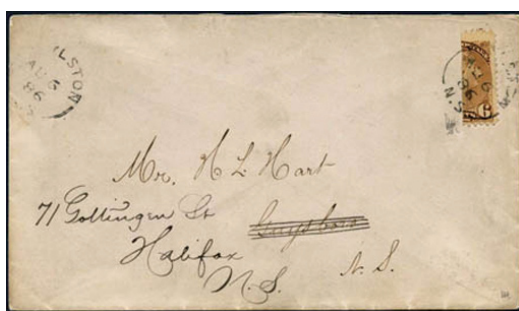 LSTON
AU 6
86
AU 6
86
N.S.
6
Mr. H L Hart
71 Gottingen St Guysboro
Halifax
N.S. N.S.